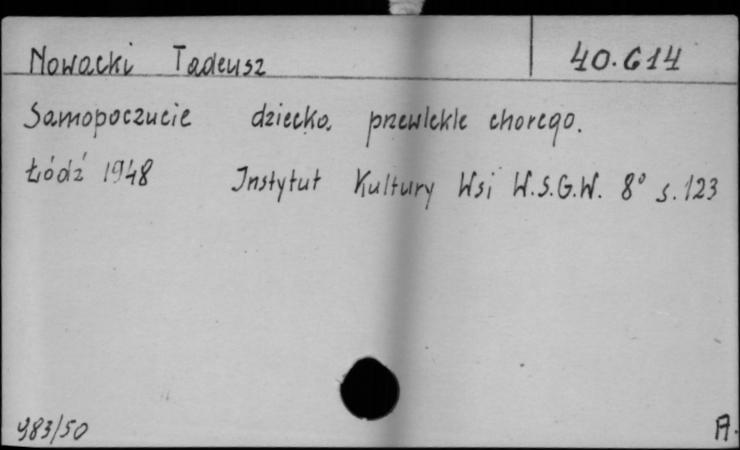 Nowacki Tadeusz 40.614
Samopoczucie dziecka przewlekle chorego.
Łódź 1948 Instytut Kultury Wsi W.S.G.W. 8° s. 123
983/50 A.